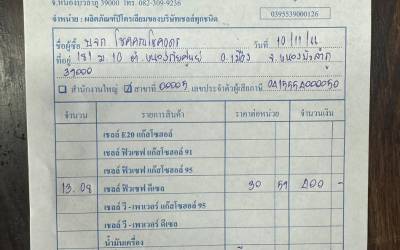 จ.หนองบัวลำภู 39000 โทร. 082-309-9236
จำหน่าย : ผลิตภัณฑ์ปิโตรเลียมของบริษัทเชลล์ทุกชนิด
0395539000126
ชื่อผู้ซื้อ บจก โชคคณาโชคอุดร วันที่ 10/11/66
ที่อยู่ 181 ม.10 ต. หนองภัยศูนย์ อ.เมือง จ.หนองบัวลำภู
39000
สำนักงานใหญ่ สาขาที่ 00005 เลขประจำตัวผู้เสียภาษี 0415554000050
จำนวน รายการสินค้า ราคาต่อหน่วย จำนวนเงิน
เชลล์ E20 แก๊สโซฮอล์
เชลล์ ฟิวเซฟ แก๊สโซฮอล์ 91
เชลล์ ฟิวเซฟ แก๊สโซฮอล์ 95
13.08 เชลล์ ฟิวเซฟ ดีเซล 30 59 400 -
เชลล์ วี - เพาเวอร์ แก๊สโซฮอล์ 95
เชลล์ วี - เพาเวอร์ ดีเซล
น้ำมันเครื่อง